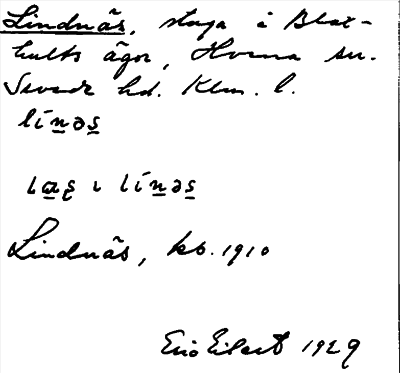 Lindnäs, stuga i Blax-
hults ägor, Horna sn.
Sevede hd. Klm. l.
línəs
i línəs
Lindnäs, kb. 1910
Eilert 1929